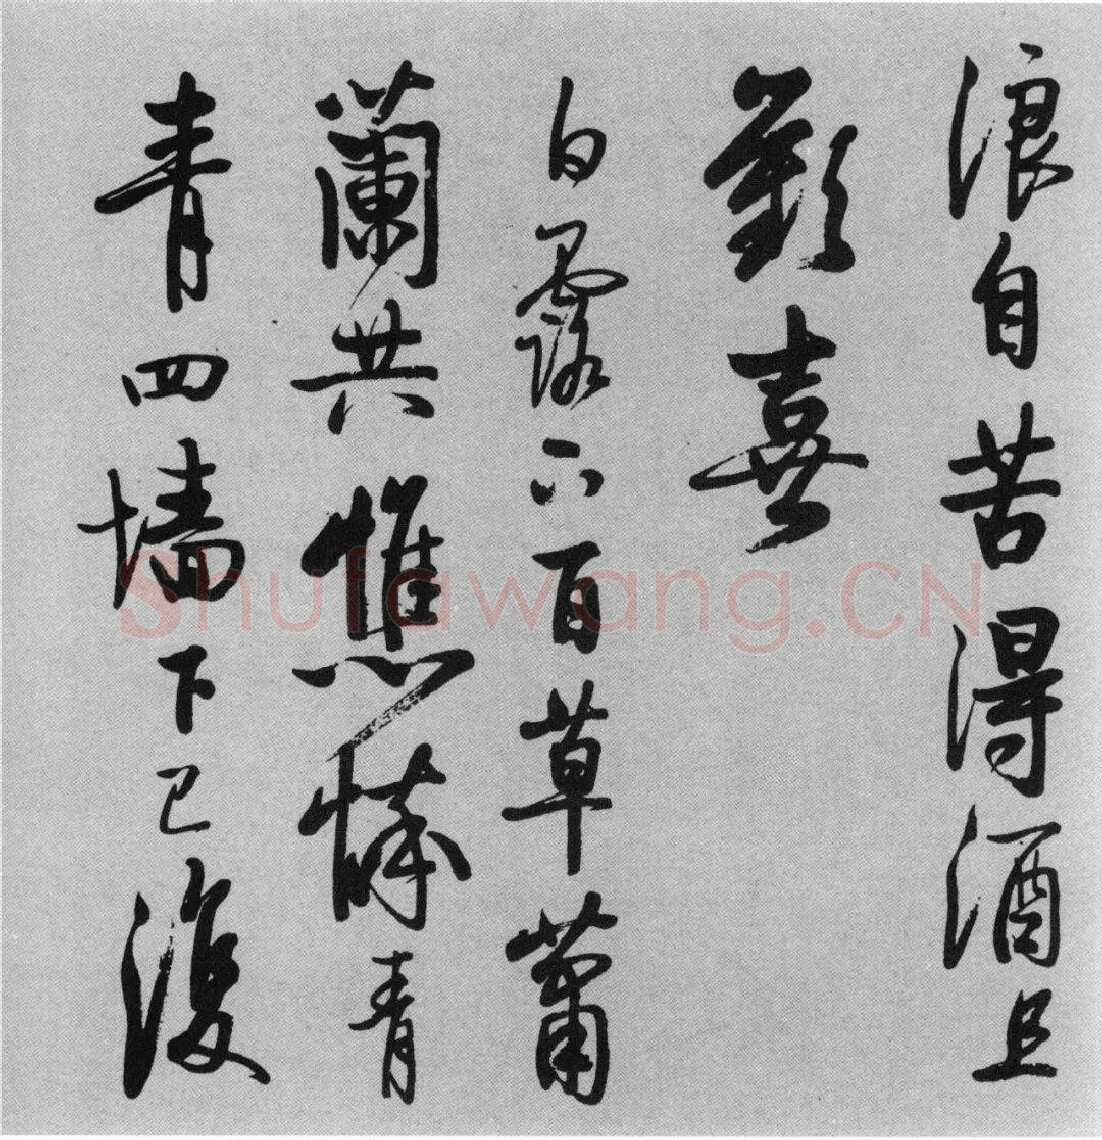 浪自苦得酒且
歡喜
白露下百草蕭
蘭共憔悴青
青四墻下已復
Shufawang.CN